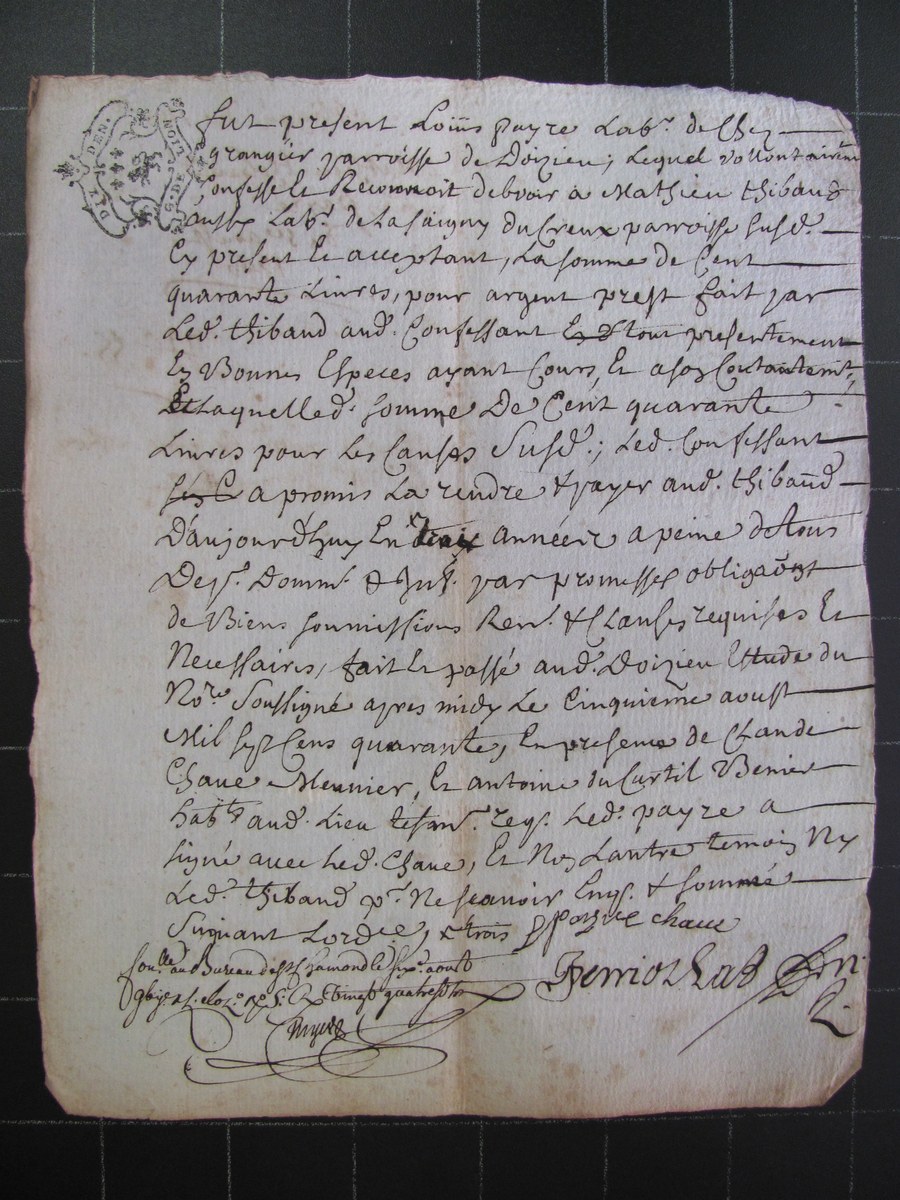 DEN.
LION
G. DE
fut present Loüis payre Labr. de Chez
grangier parroisse de Doizieu; Lequel vollontairemt
Confesse Et Reconnoit debvoir a Mathieu thibaud
aussy Labr. de La faigny du Creux parroisse susd.
Ey present Et acceptant, La somme de Cent
quarante Livres, pour argent prest fait par
Led. thibaud aud. Confessant tout presentement
En Bonnes Especes ayant Cours, Et a son Contantemt,
Laquelled. somme De Cent quarante
Livres pour Les Causes Susd.; Led. Confessant
a promis La rendre & payer aud. thibaud
D'aujourd'huy En trois année a peine de tous
Desp. Domm. & Int. par promesses obliga͠on
de Biens soumissions Ren. & Clauses requises Et
Necessaires, fait Et passé aud. Doizieu Ettude du
Nore. Soussigné apres midy Le Cinquieme aoust
Mil sept Cens quarante, En presence de Claude
Chave Meunier, Et antoine du Curtil
habts aud. Lieu tesm. req. Led. payre a
signé avec Led. Chave, Et Non Lautre temoin Ny
Led. thibaud pr. Ne scavoir Enq. & sommé
Suivant Lordce, trois payre chave
au Bureau de St. Chamond le six. aoust
vingt quatre